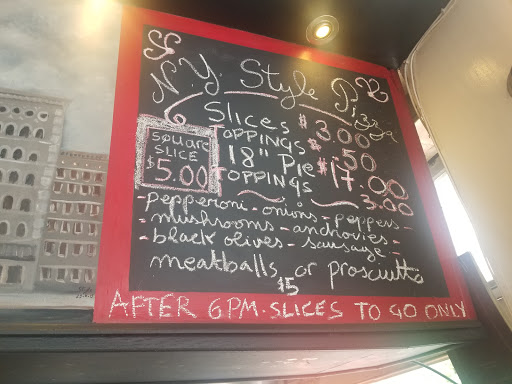 N.Y. Style Pizza
SQUARE
SLICE
$5.00
SLICES $3.00
TOPPINGS .50
18" Pie $17.00
TOPPINGS 3.00
-pepperoni-onions-peppers-
-mushrooms-anchovies-
-black olives-sausage-
meatballs or proscuitto
$5
AFTER 6PM. SLICES TO GO ONLY